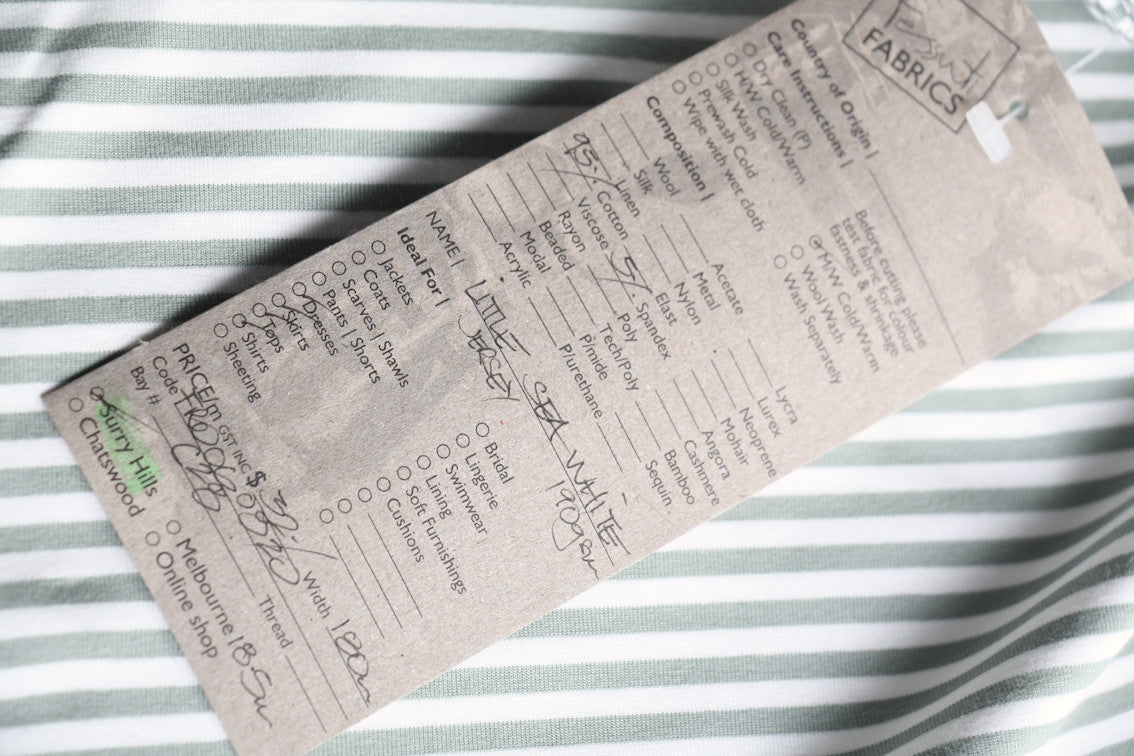 FABRICS
Country of Origin |
Care Instructions |
Dry Clean (P)
H/W Cold/Warm
Silk Wash
Prewash Cold
Wipe with wet cloth
Before cutting please
test fabric for colour
fastness & shrinkage
M/W Cold/Warm
Wool Wash
Wash Separately
Composition |
Wool
Silk
Linen
95% Cotton
Viscose
Rayon
Beaded
Modal
Acrylic
Acetate
Metal
Nylon
Elast
5% Spandex
Poly
Tech/Poly
P/mide
P/urethane
Lycra
Lurex
Neoprene
Mohair
Angora
Cashmere
Bamboo
Sequin
NAME | LITTLE SEA WHITE
JERSEY 190gsm
Ideal For |
Jackets
Coats
Scarves | Shawls
Pants | Shorts
Dresses
Skirts
Tops
Shirts
Sheeting
Bridal
Lingerie
Swimwear
Lining
Soft Furnishings
Cushions
PRICE/m GST INC $ Width
Code Thread
Bay #
Surry Hills
Chatswood
Melbourne
Online shop